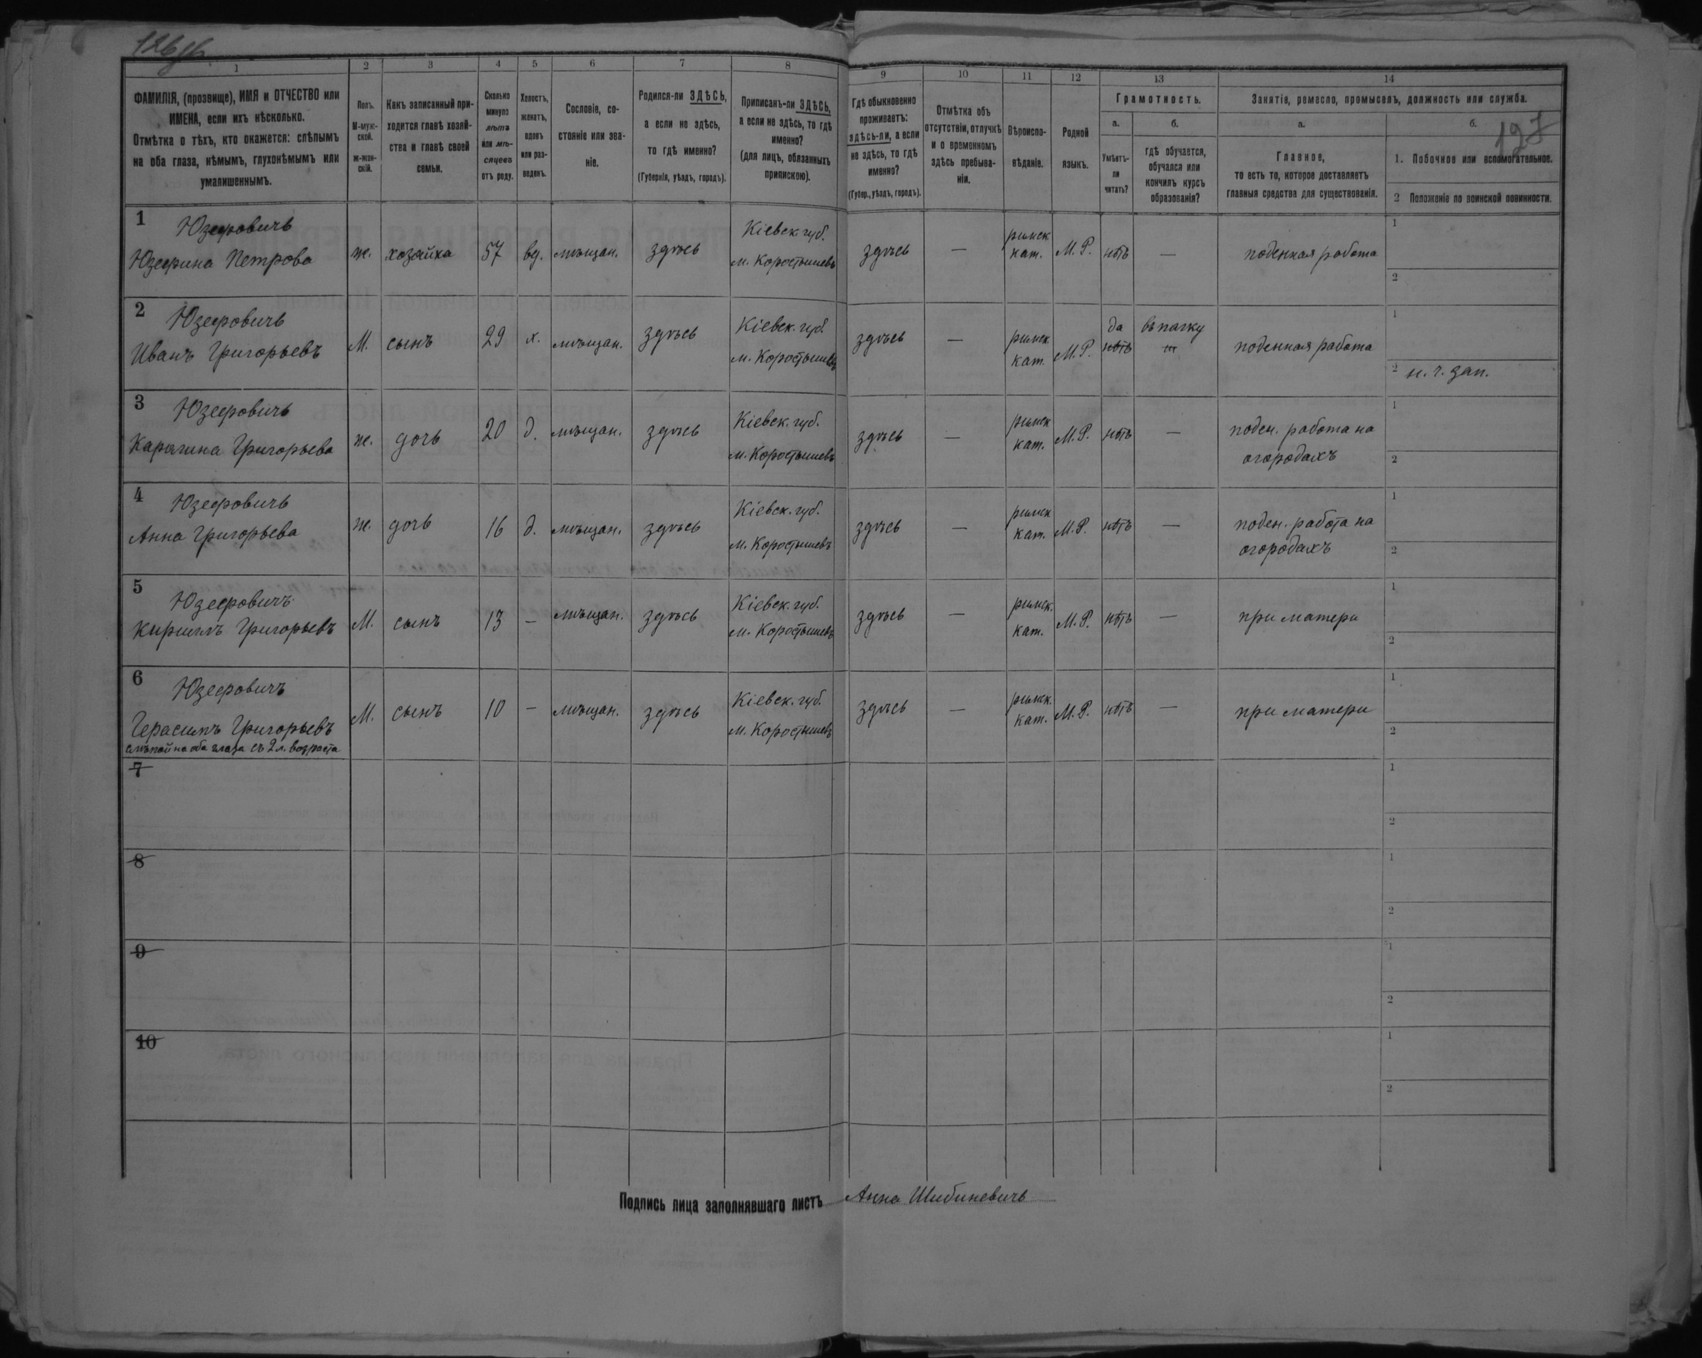 126об.
1 2 3 4 5 6 7 8 9 10 11 12 13 14
ФАМИЛІЯ, (прозвище), ИМЯ и ОТЧЕСТВО или
ИМЕНА, если ихъ нѣсколько.
Отмѣтка о тѣхъ, кто окажется: слѣпымъ
на оба глаза, нѣмымъ, глухонѣмымъ или
умалишеннымъ.
Полъ.
М-муж-
ской.
ж-жен-
скій.
Какъ записанный при-
ходится главѣ хозяй-
ства и главѣ своей
семьи.
Сколько
минуло
лѣтъ
или мѣ-
сяцевъ
отъ роду.
Холостъ,
женатъ,
вдовъ
или раз-
веденъ.
Сословіе, со-
стояніе или зва-
ніе.
Родился-ли ЗДѢСЬ,
а если не здѣсь,
то гдѣ именно?
(Губернія, уѣздъ, городъ).
Приписанъ-ли ЗДѢСЬ,
а если не здѣсь, то гдѣ
именно?
(для лицъ, обязанныхъ
припискою).
Гдѣ обыкновенно
проживаетъ:
здѣсь-ли, а если
не здѣсь, то гдѣ
именно?
(Губер., уѣздъ, городъ).
Отмѣтка объ
отсутствіи, отлучкѣ
и о временномъ
здѣсь пребыва-
ніи.
Вѣроиспо-
вѣданіе.
Родной
языкъ.
Грамотность.
а.
Умѣетъ-
ли
читать?
б.
гдѣ обучается,
обучался или
кончилъ курсъ
образованія?
Занятіе, ремесло, промыселъ, должность или служба.
а.
Главное,
то есть то, которое доставляетъ
главныя средства для существованія.
б.
127
1. Побочное или вспомогательное.
2 Положеніе по воинской повинности.
1 Юзефовичъ Кіевск. губ. римск 1
Юзефина Петрова ж. хозяйка 57 вд. мѣщан. здѣсь м. Коростышевъ здѣсь — кат. М.Р. нѣтъ — поденная работа
2
2 Юзефовичъ Кіевск. губ. римск да въ полку 1
Иванъ Григорьевъ М. сынъ 29 х. мѣщан. здѣсь м. Коростышевъ здѣсь — кат. М.Р. нѣтъ — поденная работа
2 н. ч. зап.
3 Юзефовичъ Кіевск. губ. римск поден. работа на 1
Григорьева ж. дочь 20 д. мѣщан. здѣсь м. Коростышевъ здѣсь — кат. М.Р. нѣтъ — огородахъ
2
4 Юзефовичъ Кіевск. губ. римск поден. работа на 1
Анна Григорьева ж. дочь 16 д. мѣщан. здѣсь м. Коростышевъ здѣсь — кат. М.Р. нѣтъ — огородахъ
2
5 Юзефовичъ Кіевск. губ. римск. 1
Кириллъ Григорьевъ М. сынъ 13 — мѣщан. здѣсь м. Коростышевъ здѣсь — кат. М.Р. нѣтъ — при матери
2
6 Юзефовичъ Кіевск. губ. римск. 1
Герасимъ Григорьевъ М. сынъ 10 — мѣщан. здѣсь м. Коростышевъ здѣсь — кат. М.Р. нѣтъ — при матери
слѣпой на оба глаза съ 2 л. возраста 2
7 1
2
8 1
2
9 1
2
10 1
2
Подпись лица заполнявшаго листъ Анна Шибиневичъ